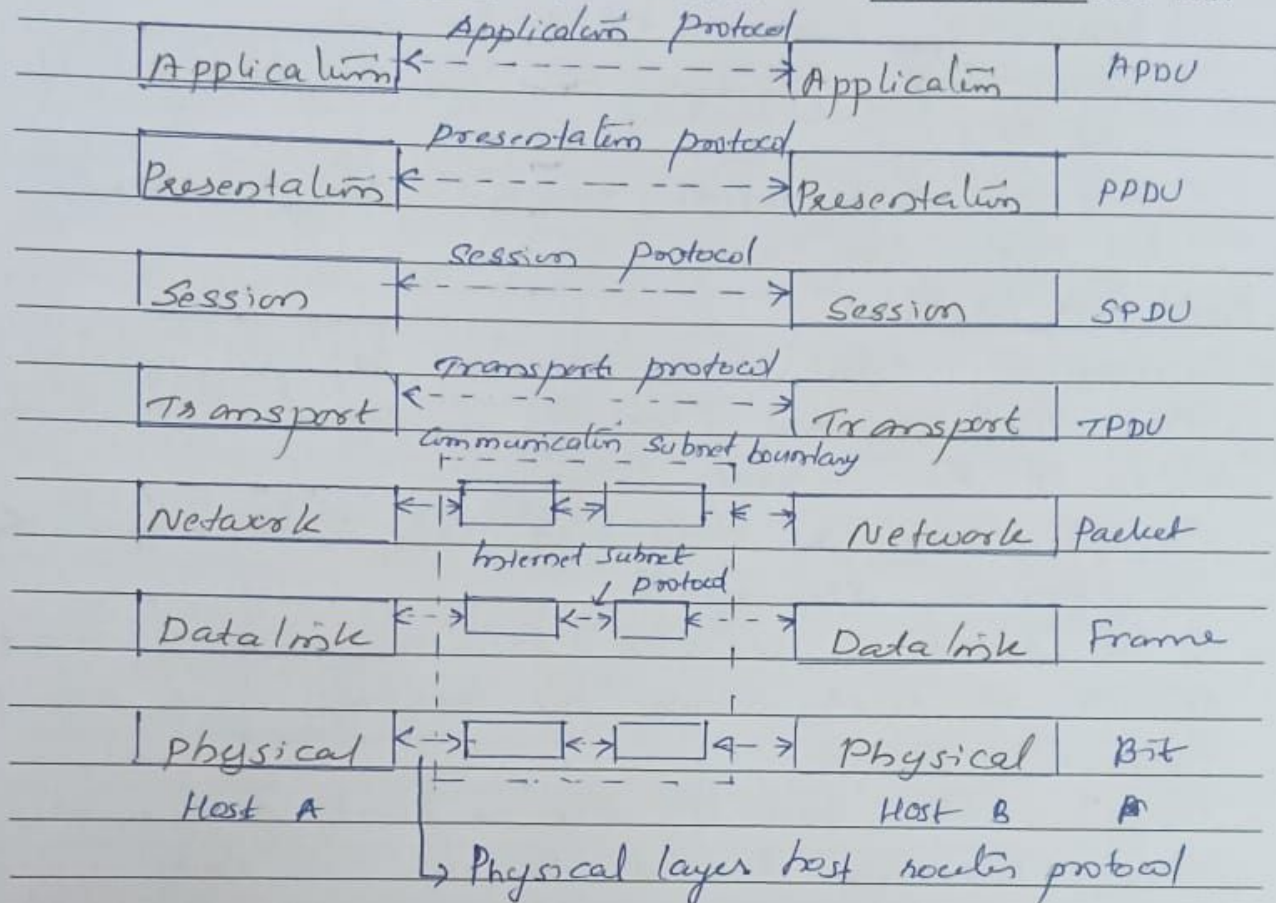 Application Protocol
Application Application APDU
Presentation protocol
Presentation Presentation PPDU
Session Protocol
Session Session SPDU
Transport protocol
Transport Transport TPDU
Communication subnet boundary
Network Network Packet
Internet subnet
protocol
Data link Data link Frame
Physical Physical Bit
Host A Host B
Physical layer host router protocol